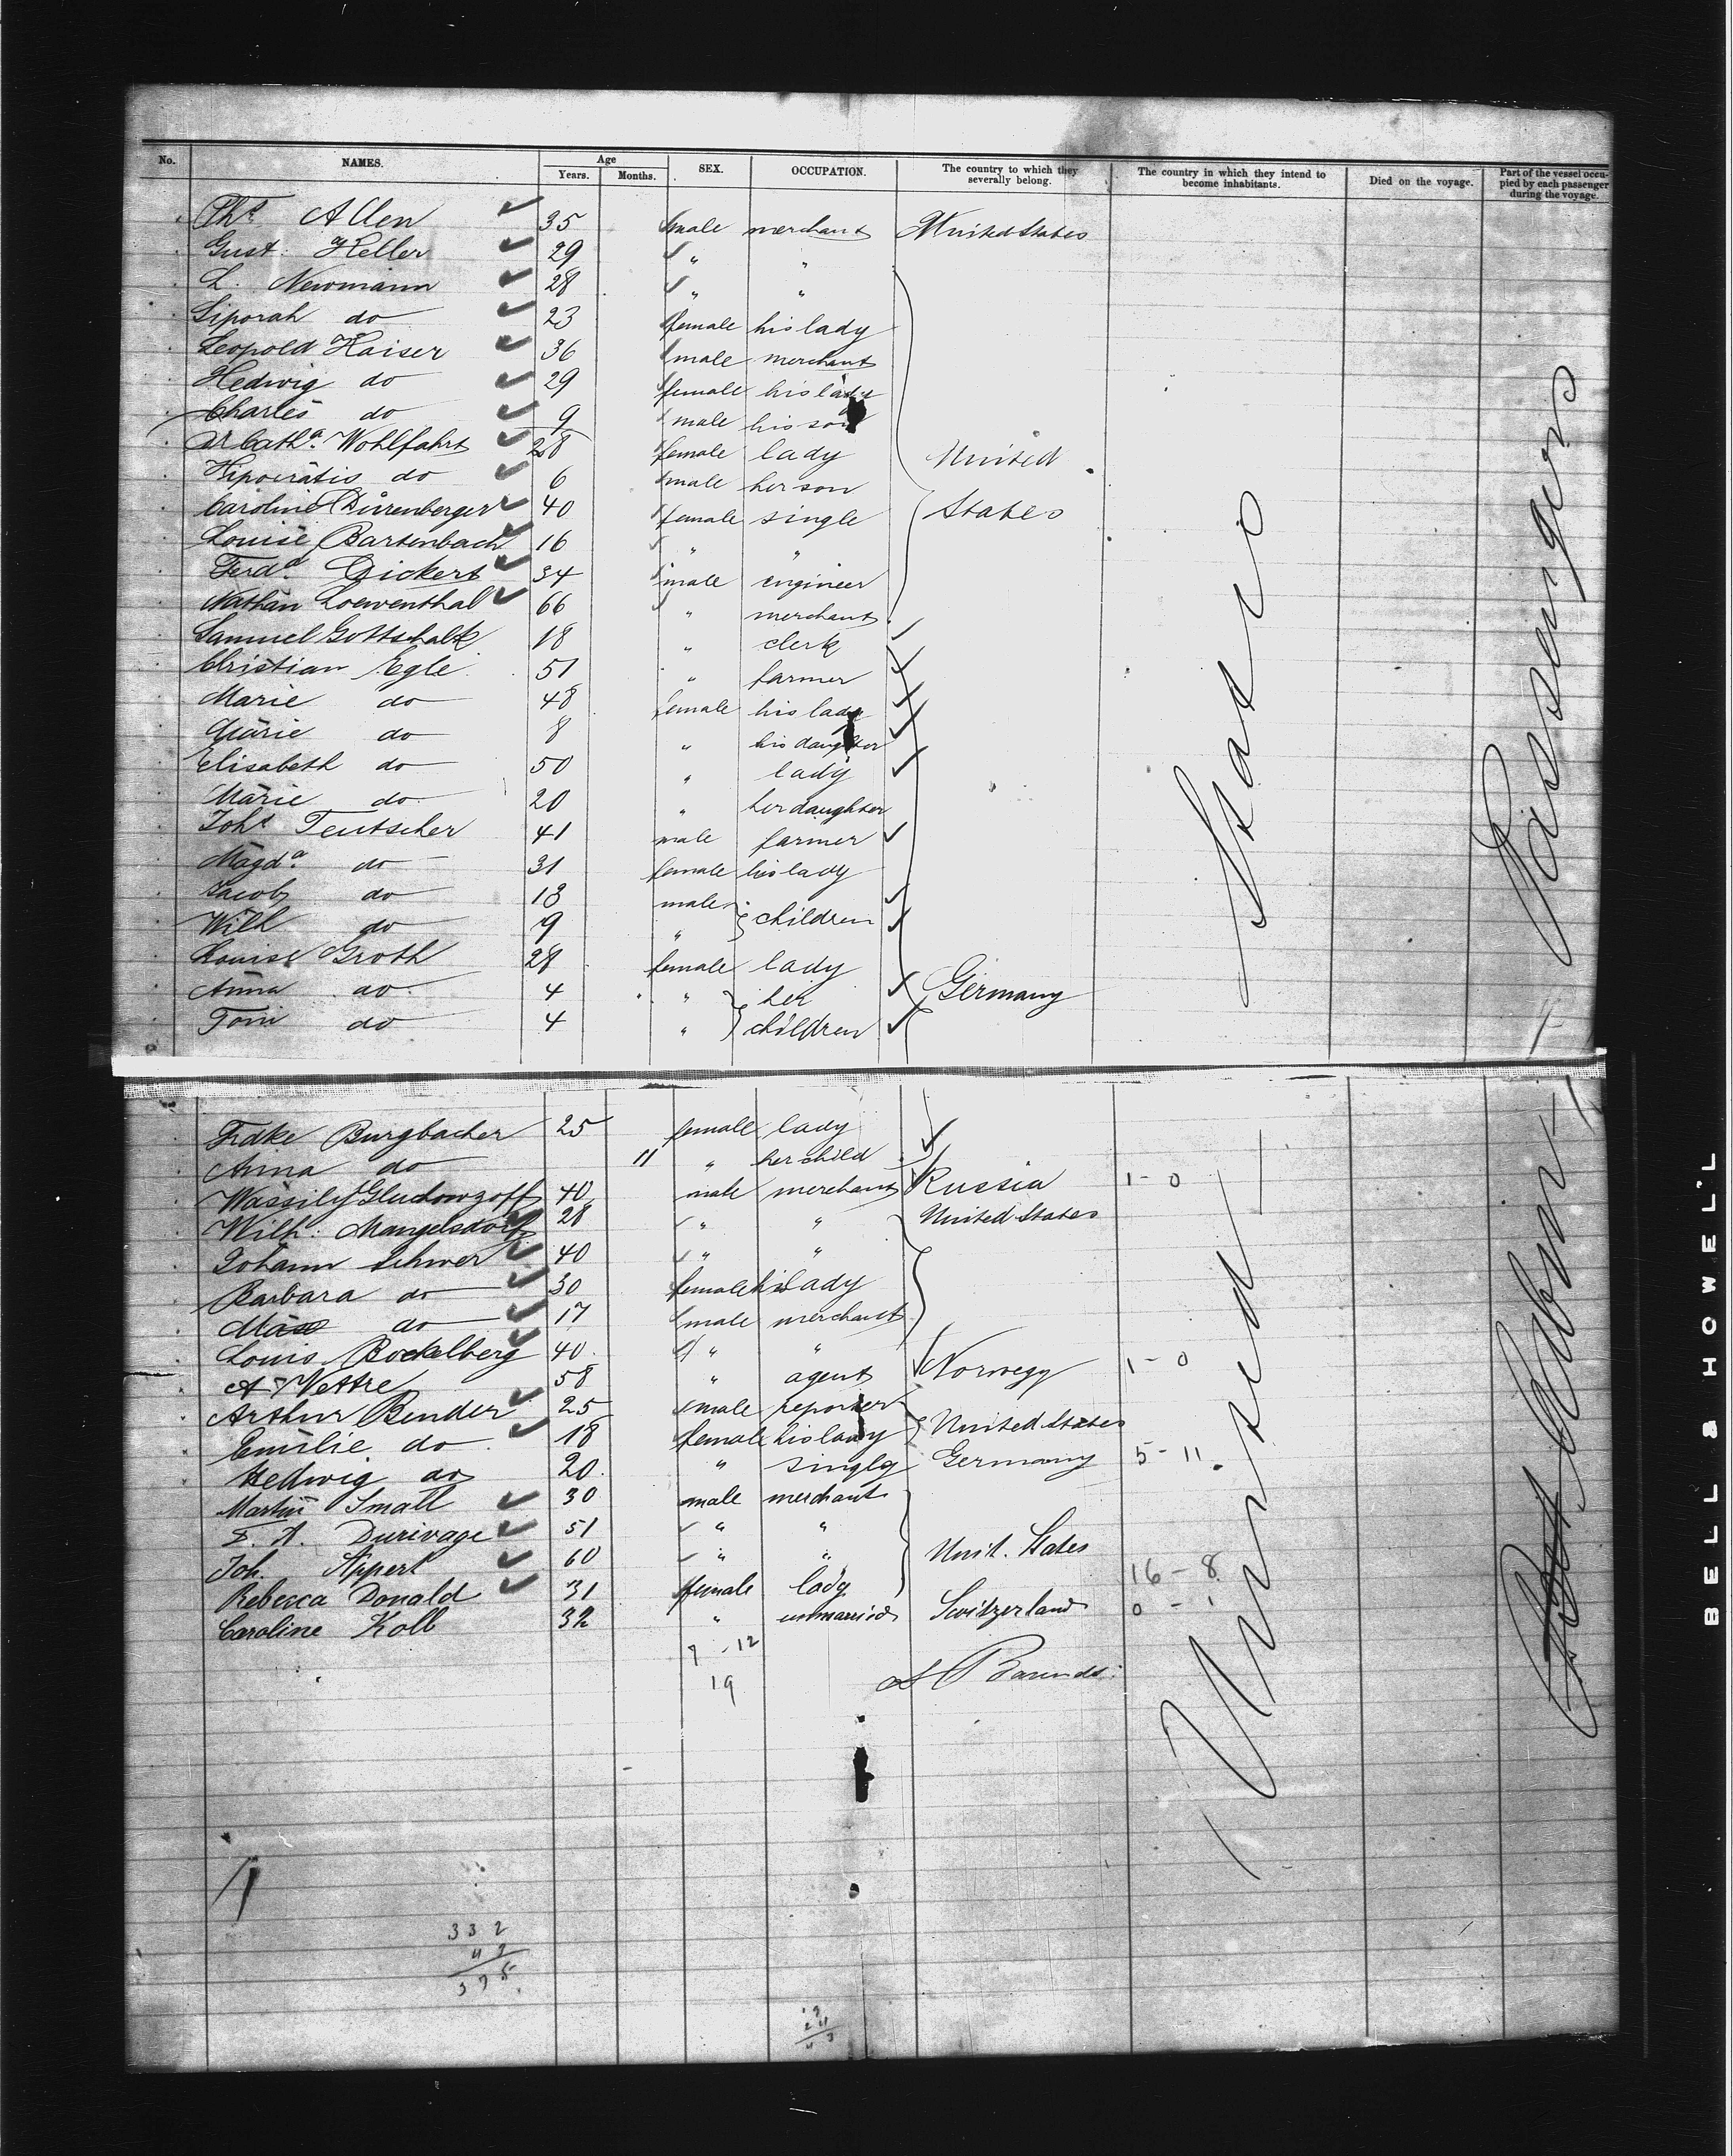 No. NAMES. Age Years. Months. SEX. OCCUPATION. The country to which they severally belong. The country in which they intend to become inhabitants. Died on the voyage. Part of the vessel occupied by each passenger during the voyage.
Allen 35 male merchant United States
Gust. Heller 29 " "
L. Newmann 28 " "
Siporah do 23 female his lady
Leopold Kaiser 36 male merchant
Hedwig do 29 female his lady
Charles do 9 male his son
Cath.a Wohlfahrt 28 female lady United
Hipocratis do 6 male her son
Caroline Dürrenberger 40 female single States
Louise Bartenbach 16 " "
Ferd.d Dickert 34 male engineer
Nathan Loewenthal 66 " merchant
Samuel Gottschalk 18 " clerk
Christian Egle 51 " farmer
Marie do 48 female his lady
Marie do 8 " his daughter
Elisabeth do 50 " lady
Marie do 20 " her daughter
Joh.s Teutscher 41 male farmer
Magd.a do 31 female his lady
Jacob do 13 male children
Wilh do 9 "
Louise Groth 28 female lady
Anna do 4 " her Germany
Toni do 4 " children
States
Passengers
Frdke Burgbacher 25 female lady
Anna do 11 " her child
Wassily Gluchowzoff 40 male merchant Russia 1-0
Wilh. Mangelsdorf 28 " " United States
Johann Schwer 40 " "
Barbara do 30 female his lady
Max do 17 male merchant
Louis Bockelberg 40 " "
A Wettre 58 " agent Norwegy 1-0
Arthur Bender 25 male reporter United States
Emilie do 18 female his lady
Hedwig do 20 " single Germany 5-11
Martin Small 30 male merchant
F. A. Durivage 51 " "
Joh. Rippert 60 " " Unit. States
Rebecca Donald 31 female lady 16-8
Caroline Koll 32 " unmarried Switzerland 0-1
7-12
19
United
Cabin
332
375
BELL & HOWELL